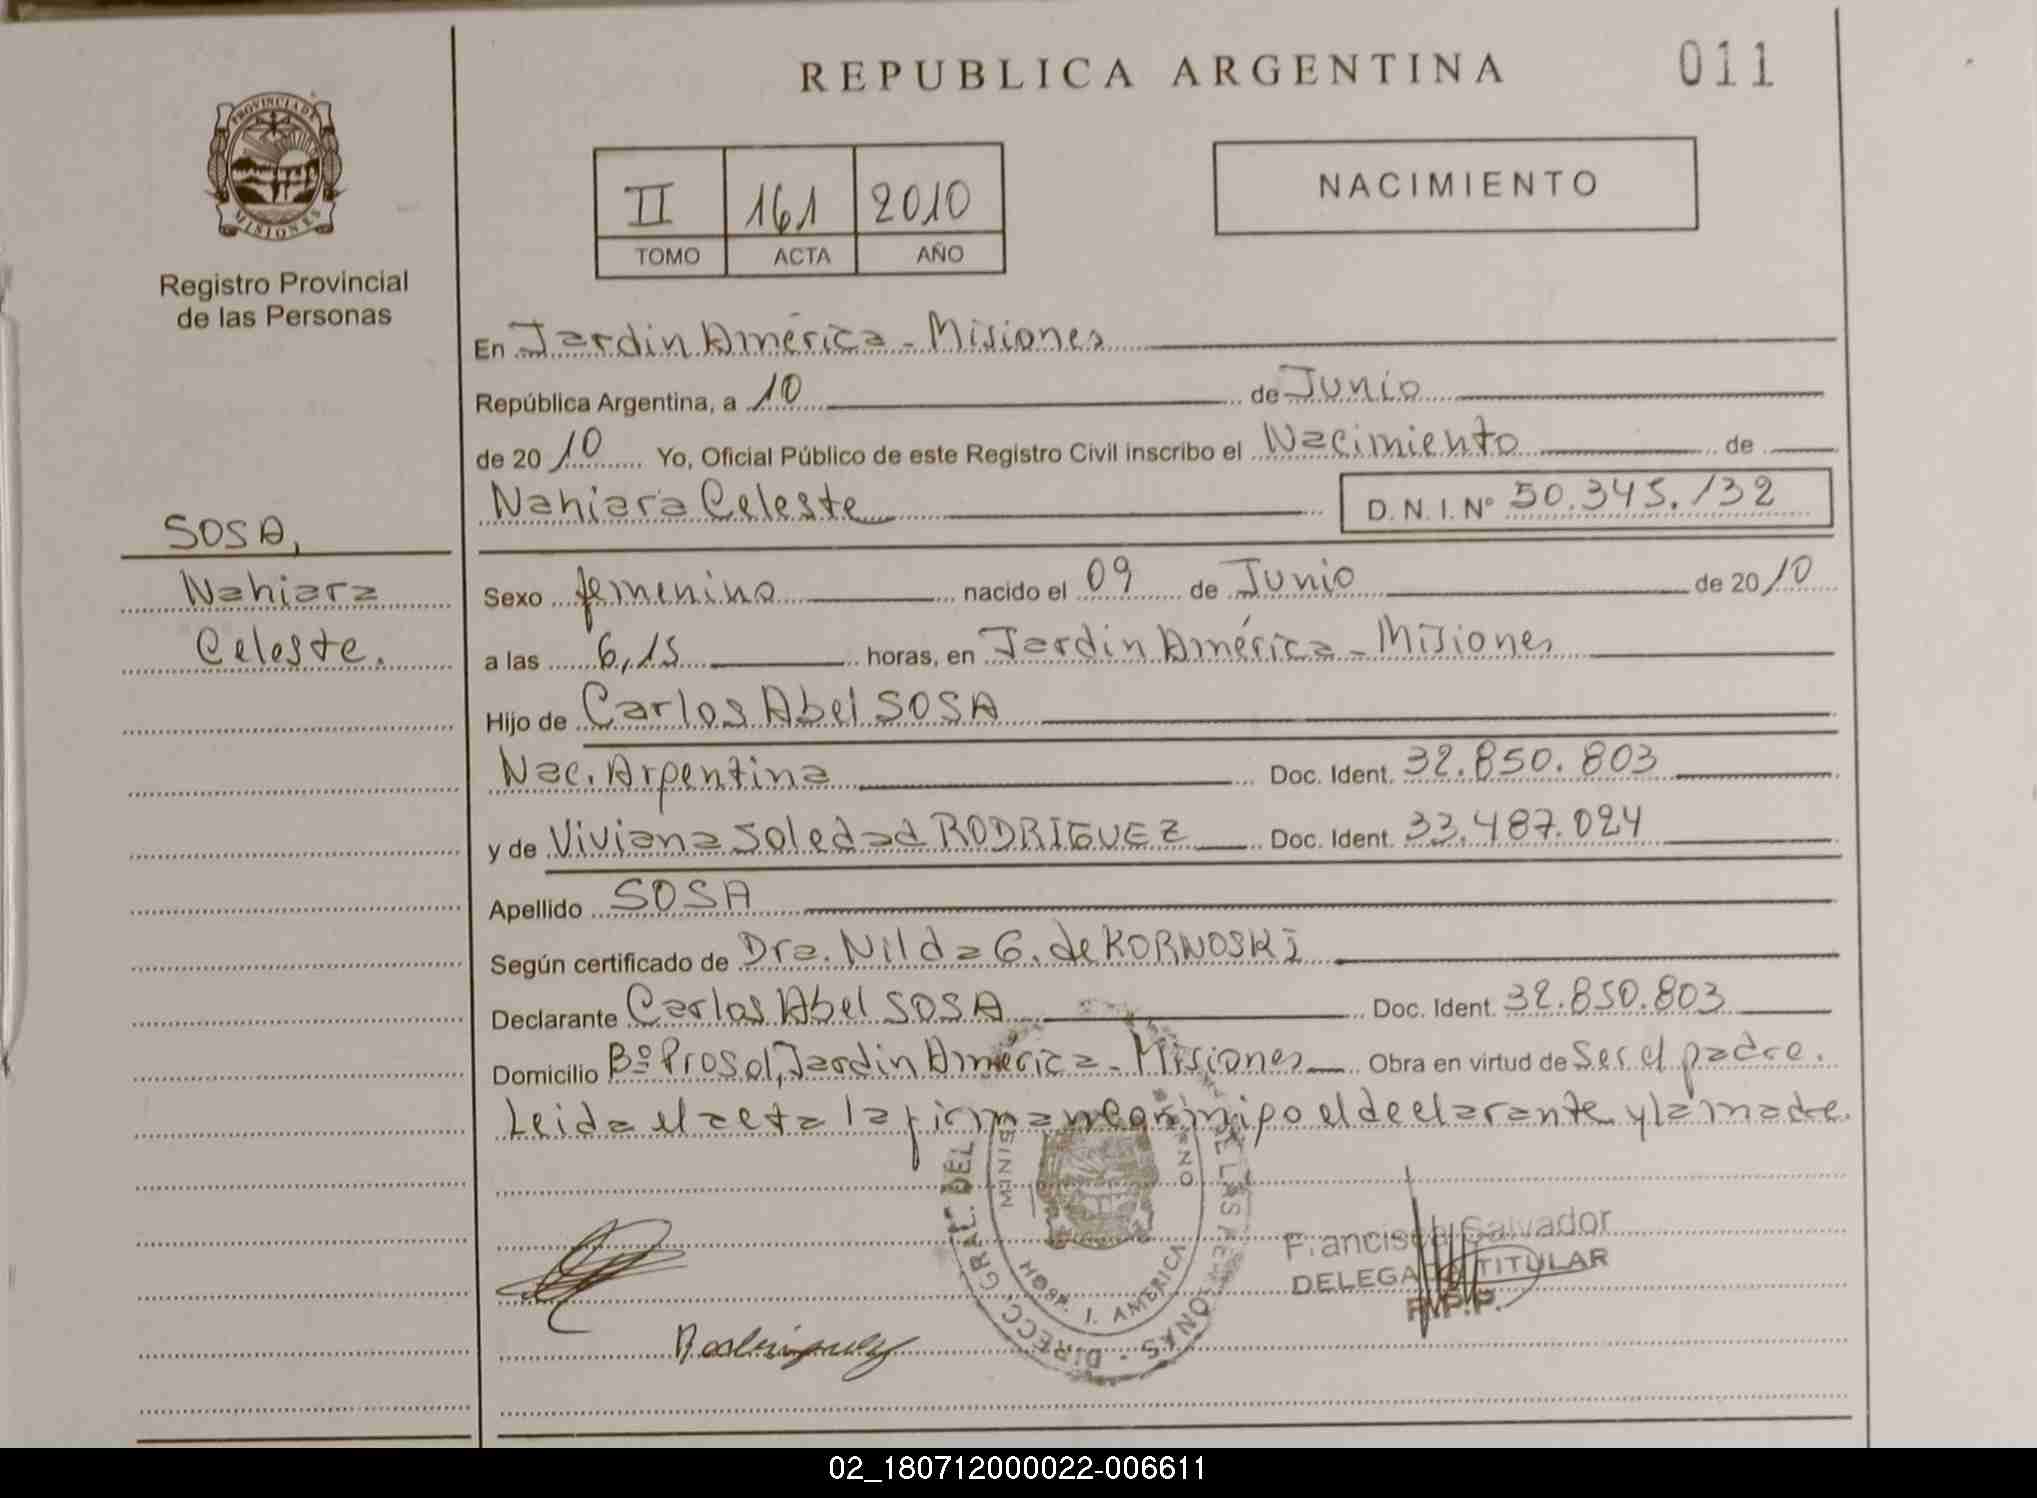 REPUBLICA ARGENTINA
011
PROVINCIA DE
MISIONES
Registro Provincial
de las Personas
II 161 2010
TOMO ACTA AÑO
NACIMIENTO
En Jardin América - Misiones
República Argentina, a 10 de Junio
de 20 10 Yo, Oficial Público de este Registro Civil inscribo el Nacimiento de
Nahiara Celeste D. N. I. Nº 50.345.132
SOSA,
Nahiara
Celeste.
Sexo femenino nacido el 09 de Junio de 20 10
a las 6,15 horas, en Jardin América - Misiones
Hijo de Carlos Abel SOSA
Nac. Argentina Doc. Ident. 32.850.803
y de Viviana Soledad RODRIGUEZ Doc. Ident. 33.487.024
Apellido SOSA
Según certificado de Dra. Nilda G. de KORNOSKI
Declarante Carlos Abel SOSA Doc. Ident. 32.850.803
Domicilio Bº Prosol, Jardin América - Misiones Obra en virtud de Ser el padre.
Leida el acta la firman conmigo el declarante y la madre.
DIRECC GRAL. DEL
HOSP. J. AMERICA
Rodriguez
Salvador
DELEGADO TITULAR
R.P.P.
02_180712000022-006611